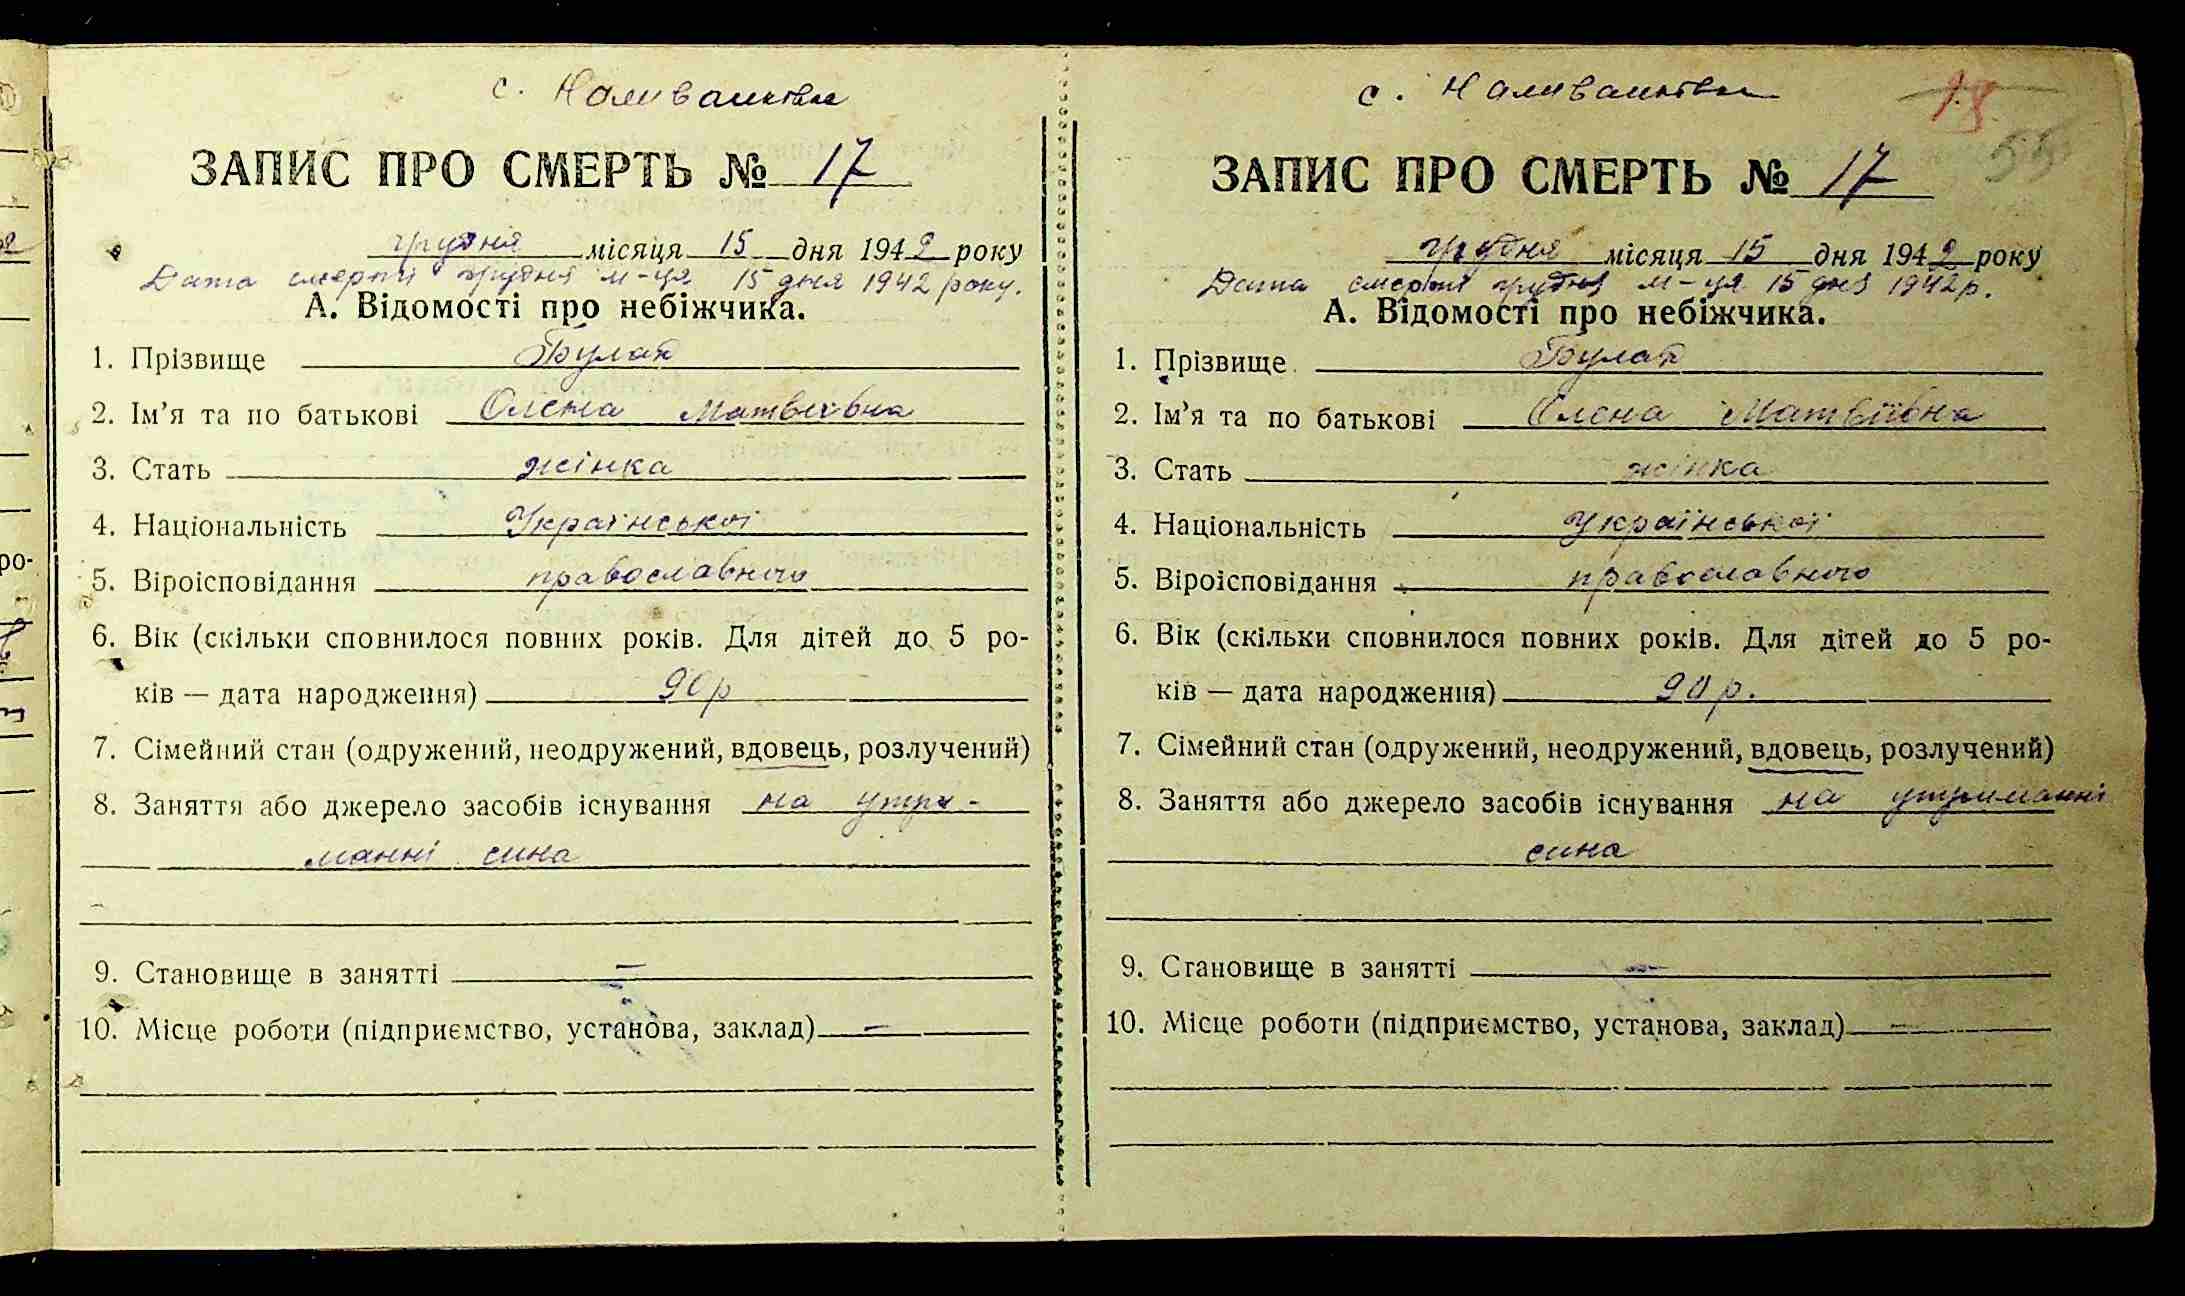 с. Наливайківка
ЗАПИС ПРО СМЕРТЬ № 17
грудня місяця 15 дня 1942 року
Дата смерти грудня м-ця 15 дня 1942 року.
А. Відомості про небіжчика.
1. Прізвище Булат
2. Ім'я та по батькові Олена Матвіївна
3. Стать жінка
4. Національність Української
5. Віроісповідання православного
6. Вік (скільки сповнилося повних років. Для дітей до 5 ро-
ків — дата народження) 90 р
7. Сімейний стан (одружений, неодружений, вдовець, розлучений)
8. Заняття або джерело засобів існування на утри-
манні сина
9. Становище в занятті —
10. Місце роботи (підприємство, установа, заклад) —
с. Наливайківка
18
55
ЗАПИС ПРО СМЕРТЬ № 17
грудня місяця 15 дня 1942 року
Дата смерти грудня м-ця 15 дня 1942 р.
А. Відомості про небіжчика.
1. Прізвище Булат
2. Ім'я та по батькові Олена Матвіївна
3. Стать жінка
4. Національність Української
5. Віроісповідання православного
6. Вік (скільки сповнилося повних років. Для дітей до 5 ро-
ків — дата народження) 90 р.
7. Сімейний стан (одружений, неодружений, вдовець, розлучений)
8. Заняття або джерело засобів існування на утриманні
сина
9. Становище в занятті —
10. Місце роботи (підприємство, установа, заклад) —